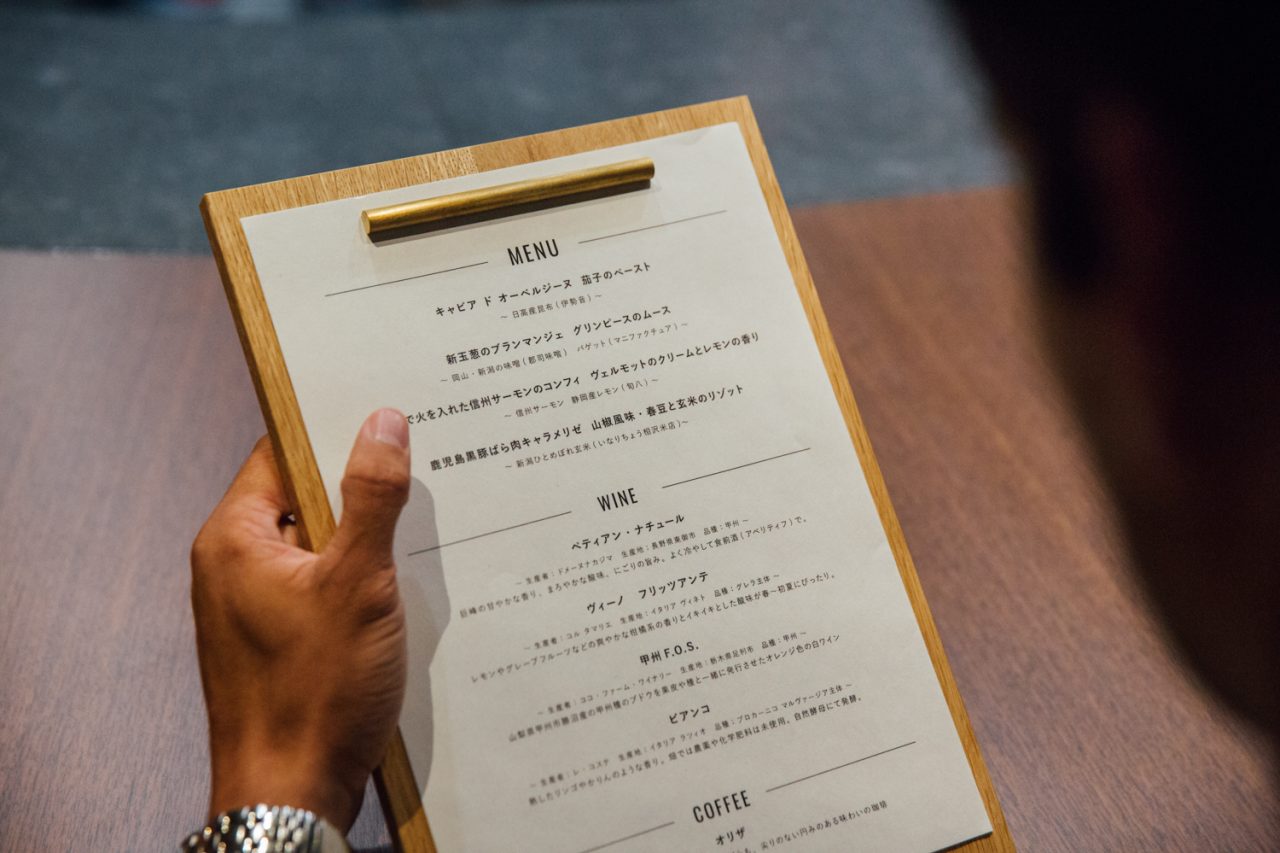 MENU
キャビア ド オーベルジーヌ 茄子のペースト
～ 日高産昆布 ( 伊勢音 ) ～
新玉葱のブランマンジェ グリンピースのムース
～ 岡山・新潟の味噌 ( 郡司味噌 ) バゲット ( マニファクチュア ) ～
で火を入れた信州サーモンのコンフィ ヴェルモットのクリームとレモンの香り
～ 信州サーモン 静岡産レモン ( 旬八 ) ～
鹿児島黒豚ばら肉キャラメリゼ 山椒風味・春豆と玄米のリゾット
～ 新潟ひとめぼれ玄米 ( いなりちょう相沢米店 ) ～
WINE
ペティアン・ナチュール
～ 生産者：ドメーヌナカジマ 生産地：長野県東御市 品種：甲州 ～
巨峰の甘やかな香り、まろやかな酸味、にごりの旨み。よく冷やして食前酒 ( アペリティフ ) で。
ヴィーノ フリッツアンテ
～ 生産者：コル タマリエ 生産地：イタリア ヴィネト 品種：グレラ主体 ～
レモンやグレープフルーツなどの爽やかな柑橘系の香りとイキイキとした酸味が春～初夏にぴったり。
甲州 F.O.S.
～ 生産者：ココ・ファーム・ワイナリー 生産地：栃木県足利市 品種：甲州 ～
山梨県甲州市勝沼産の甲州種のブドウを果皮や種と一緒に発行させたオレンジ色の白ワイン
ビアンコ
～ 生産者：レ・コステ 生産地：イタリア ラツィオ 品種：プロカーニコ マルヴァージア主体 ～
熟したリンゴやかりんのような香り。畑では農薬や化学肥料は未使用、自然酵母にて発酵。
COFFEE
オリザ
尖りのない円みのある味わいの珈琲